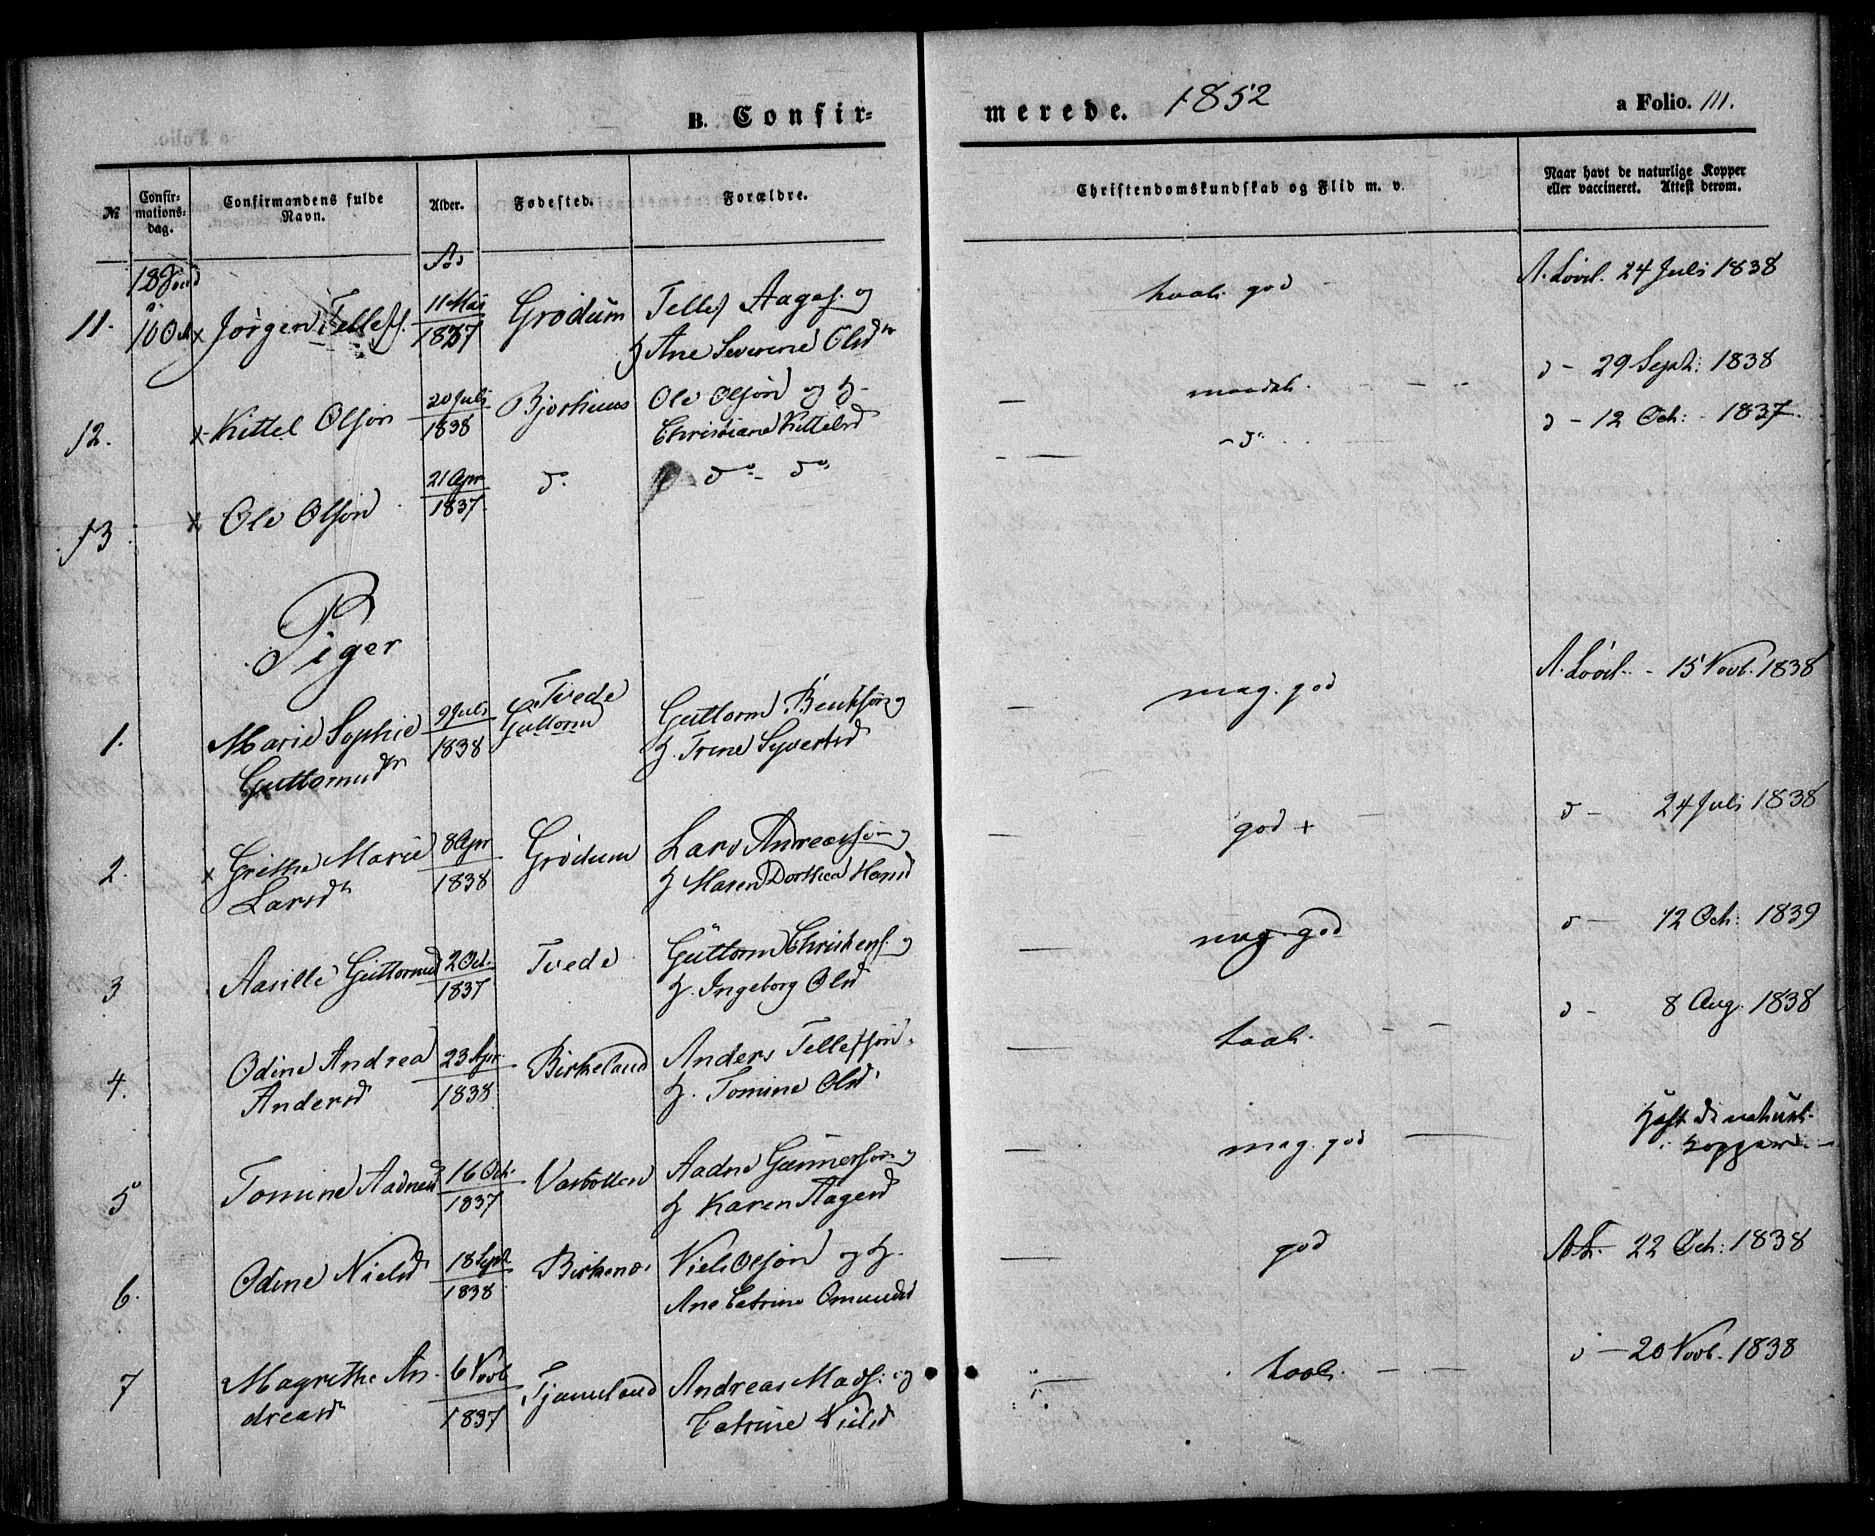 B. Confir-
merede. 1852
a Folio. 111.
№
Confir-
mations-
dag.
Confirmandens fulde
Navn.
Alder.
Fødested.
Forældre.
Christendomskundskab og Flid m. v.
Naar havt de naturlige Kopper
eller vaccineret. Attest derom.
11. 10 Oct x Jørgen Tellefs. 11 Mai 1837 Grødum Tellef Aages. og
H Ane Severine Olsdr
taal. god
A. Løvel. 24 Juli 1838
12. x Kittel Olsøn 20 Juli 1838 Bjorkenes Ole Olsøn og H.
Christiane Kittelsd
maadel.
d - 29 Sept: 1838
13 x Ole Olsøn 21 Apr 1837 do do - do
- do
d - 12 Oct: - 1837.
Piger
1. Marie Sophie 9 Juli 1838 Tvede Guttorm Bentsøn og
Guttormsdr H. Trine Syvertsd
mag. god
A. Løvel. - 15 Novb. 1838
2. x Grethe Marie 8 Apr 1838 Grødum Lars Andreassøn og
Larsdr H Maren Dorthea Hansd
god +
d - 24 Juli 1838
3 Aasille Guttormsd 2 Oct. 1837 Tvede Guttorm Christens. og
H. Ingeborg Olsd
mag god
d - 12 Oct: 1839
4. Odine Andrea 23 Apr. 1838 Birkeland Anders Tellefsøn.
Andersd H. Tomine Olsd
taal.
d - 8 Aug. 1838
5 Tomine Aadnesd 16 Oct. 1837 Vasbotten Aadne Gunnersøn og
H Karen Aagesd
mag. god
Haft de naturl.
Kopper
6. Odine Nielsd 18 Sept. 1838 Birkenes Niels Olsøn og H.
Ane Catrine Omundsd
god
A. L. - 22 Oct: 1838
7 Magrethe An- 6 Novb 1837 Tjameland Andreas Mads. og
dreasdr Catrine Nielsd
taal.
d - 20 Novb. 1838